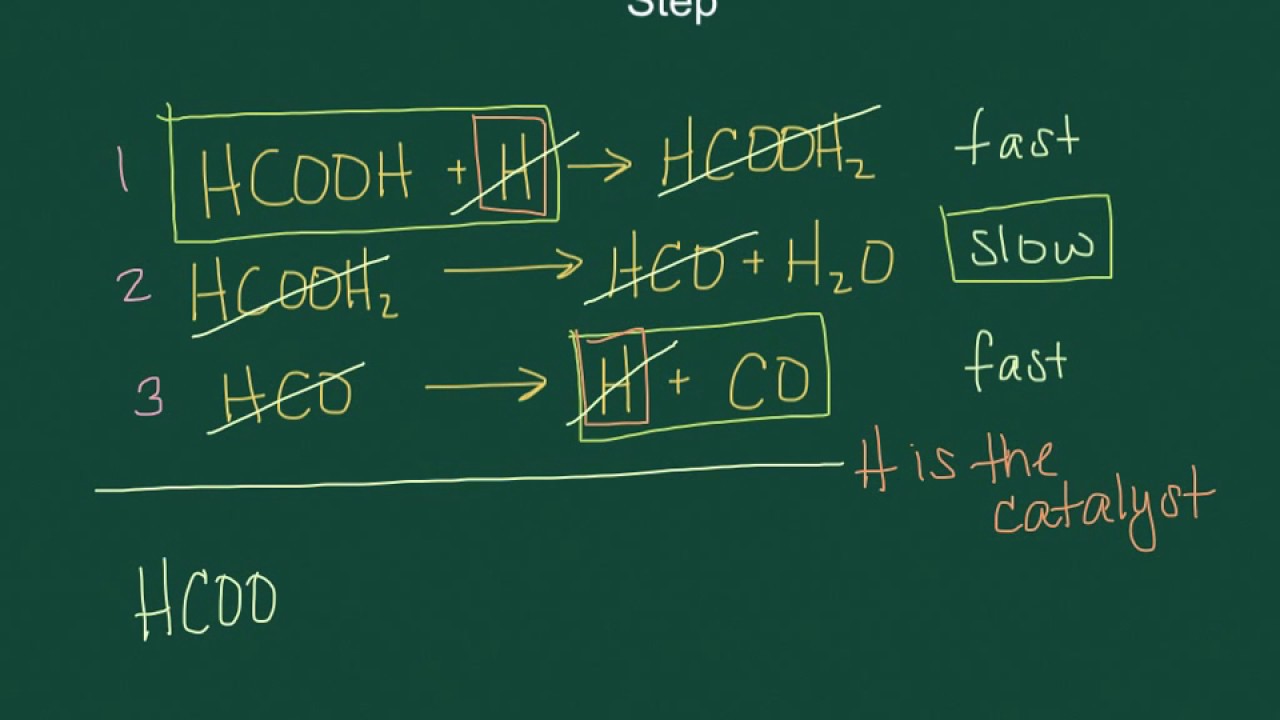 Step
1 HCOOH + H → HCOOH₂ fast
2 HCOOH₂ → HCO + H₂O slow
3 HCO → H + CO fast
H is the
catalyst
HCOO